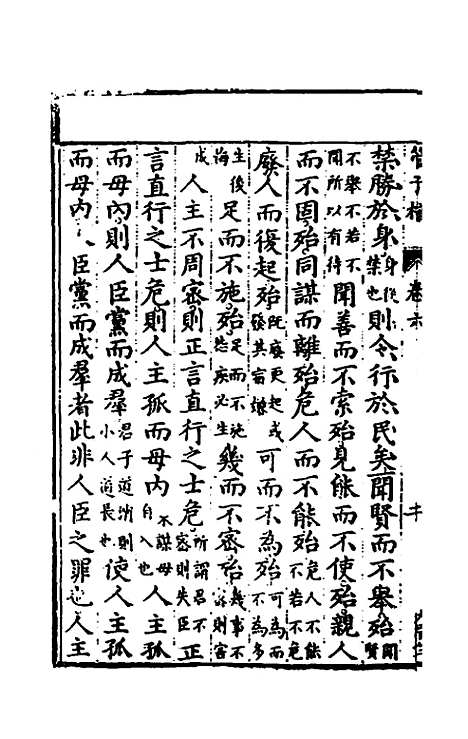 管子榷 卷六
禁勝於身身從禁也則令行於民矣聞賢而不舉殆聞賢
不舉不若不聞所以有待聞善而不索殆見能而不使殆親人
而不固殆同謀而離殆危人而不能殆危人不能不若不危
廢人而復起殆既廢更起或發其宿憾可而不為殆可為而不為多
生後悔足而不施殆足而不施怨疾必生幾而不密殆幾事不密則害
成人主不周密則正言直行之士危所謂君不密則失臣正
言直行之士危則人主孤而毋內不謀毋自入也人主孤
而毋內則人臣黨而成羣君子道消則小人道長也使人主孤
而毋內人臣黨而成羣者此非人臣之罪也人主